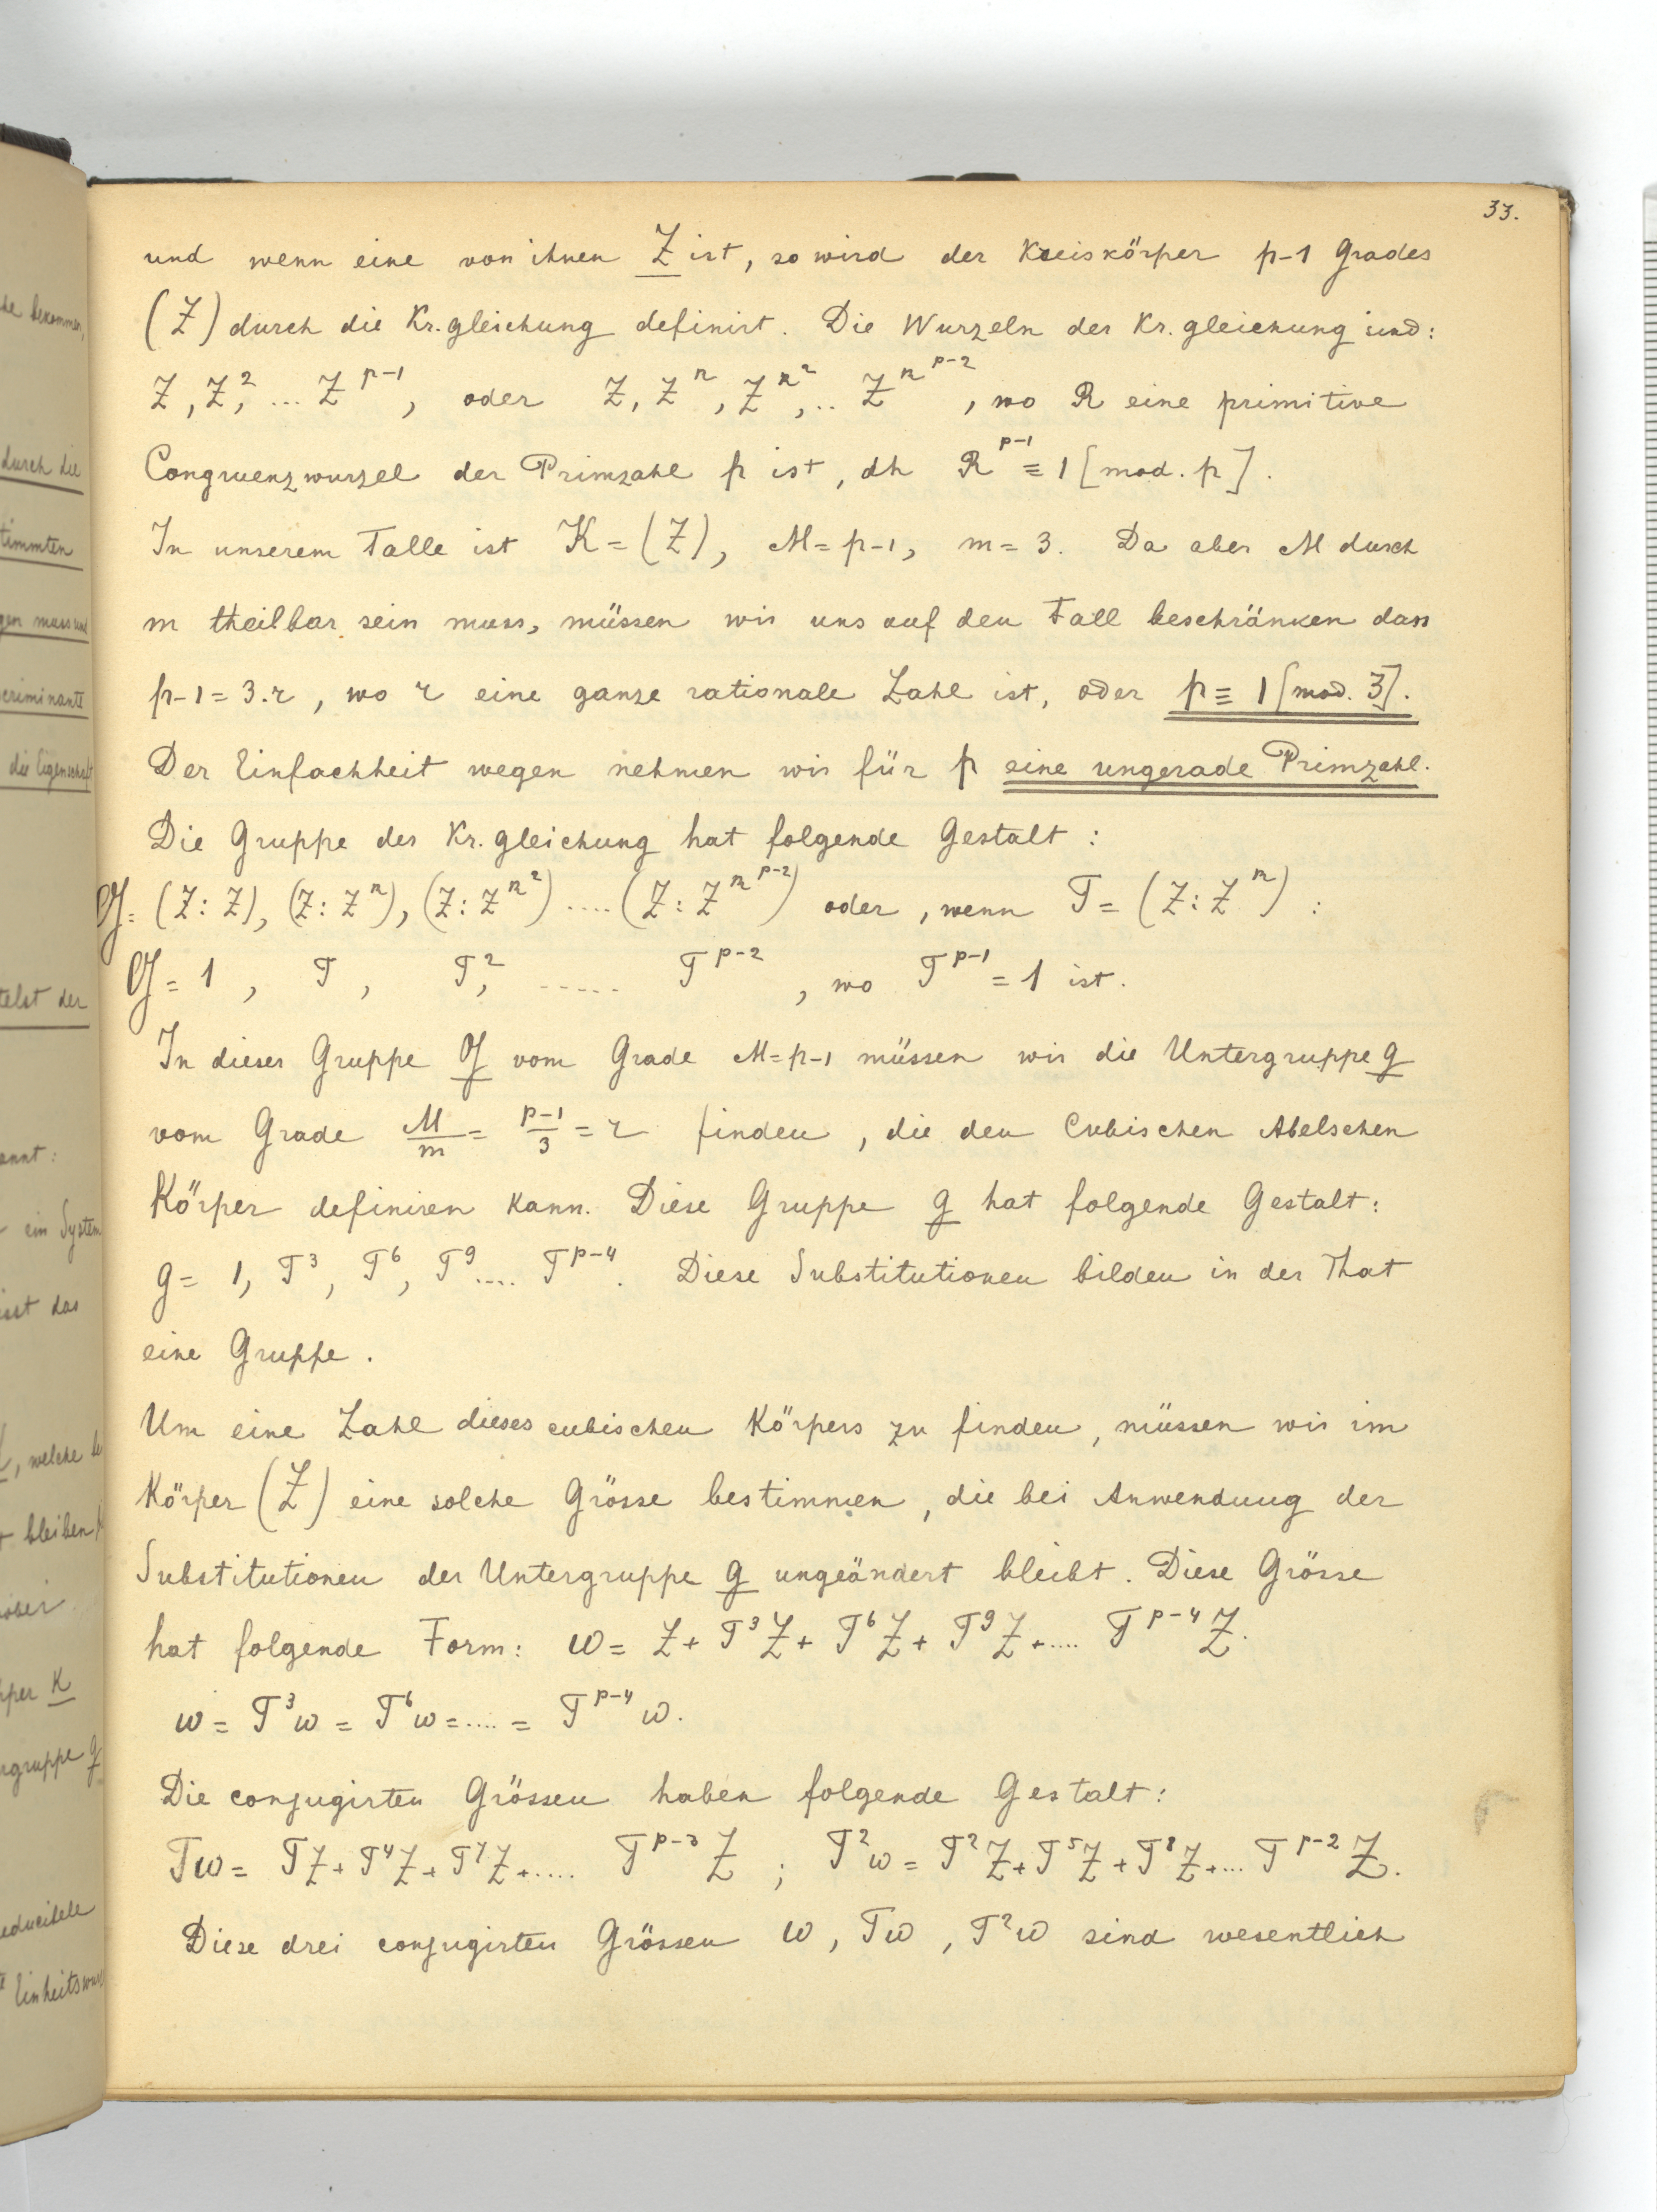 33.
und wenn eine von ihnen Z ist, so wird der Kreiskörper p-1 Grades
(Z) durch die Kr.gleichung definirt. Die Wurzeln der Kr.gleichung sind:
Z, Z², ... Z^{p-1}, oder Z, Z^R, Z^{R²}, .. Z^{R^{p-2}}, wo R eine primitive
Congruenzwurzel der Primzahl p ist, dh R^{p-1} ≡ 1 [mod. p].
In unserem Falle ist K = (Z), M = p-1, m = 3. Da aber M durch
m theilbar sein muss, müssen wir uns auf den Fall beschränken dass
p-1 = 3.r, wo r eine ganze rationale Zahl ist, oder p ≡ 1 [mod. 3].
Der Einfachheit wegen nehmen wir für p eine ungerade Primzahl.
Die Gruppe der Kr.gleichung hat folgende Gestalt:
G = (Z:Z), (Z:Z^R), (Z:Z^{R²}) .... (Z:Z^{R^{p-2}}) oder, wenn T = (Z:Z^R) :
G = 1, T, T², ..... T^{p-2}, wo T^{p-1} = 1 ist.
In dieser Gruppe G vom Grade M = p-1 müssen wir die Untergruppe g
vom Grade M/m = (p-1)/3 = r finden, die den Cubischen Abelschen
Körper definiren kann. Diese Gruppe g hat folgende Gestalt:
g = 1, T³, T⁶, T⁹ .... T^{p-4}. Diese Substitutionen bilden in der That
eine Gruppe.
Um eine Zahl dieses cubischen Körpers zu finden, müssen wir im
Körper (Z) eine solche Grösse bestimmen, die bei Anwendung der
Substitutionen der Untergruppe g ungeändert bleibt. Diese Grösse
hat folgende Form: ω = Z + T³Z + T⁶Z + T⁹Z + .... T^{p-4}Z.
ω = T³ω = T⁶ω = .... = T^{p-4}ω.
Die conjugirten Grössen haben folgende Gestalt:
Tω = TZ + T⁴Z + T⁷Z + ..... T^{p-3}Z ; T²ω = T²Z + T⁵Z + T⁸Z + ... T^{p-2}Z.
Diese drei conjugirten Grössen ω, Tω, T²ω sind wesentlich